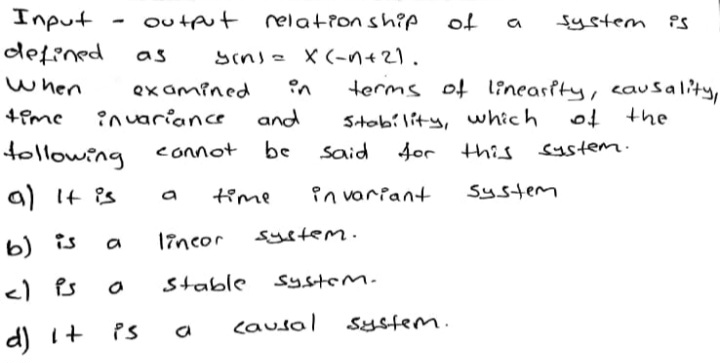 Input - output relationship of a system is
defined as y(n) = x(-n+2).
When examined in terms of linearity, causality,
time invariance and stability, which of the
following cannot be said for this system.
a) It is a time invariant system
b) is a linear system.
c) is a stable system.
d) It is a causal system.